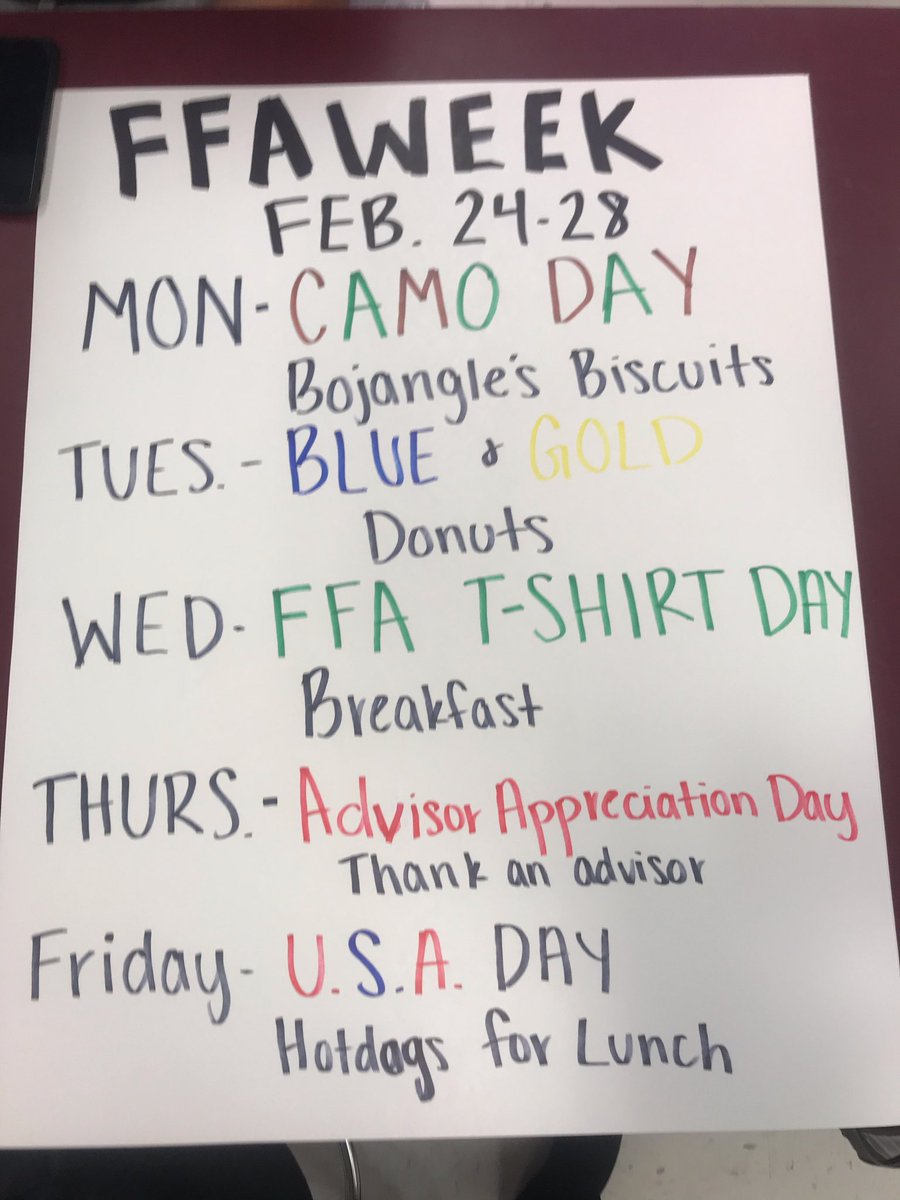 FFA WEEK
FEB. 24-28
MON- CAMO DAY
Bojangle's Biscuits
TUES.- BLUE & GOLD
Donuts
WED- FFA T-SHIRT DAY
Breakfast
THURS.- Advisor Appreciation Day
Thank an advisor
Friday- U.S.A. DAY
Hotdogs for Lunch